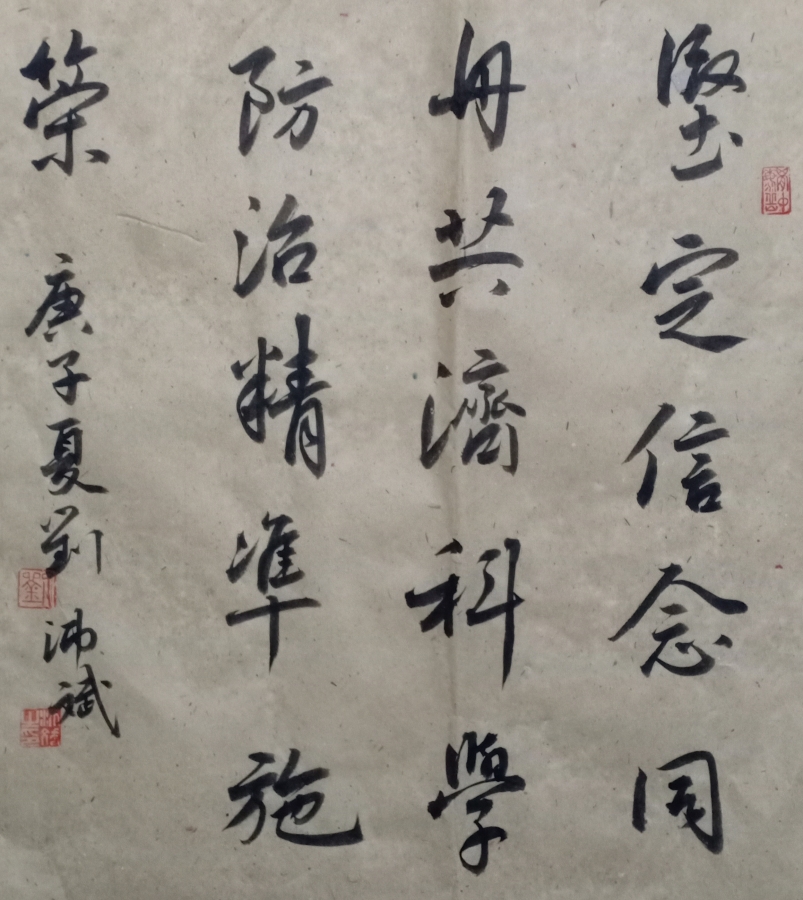 堅定信念同
舟共濟科學
防治精準施
策
庚子夏劉沛斌